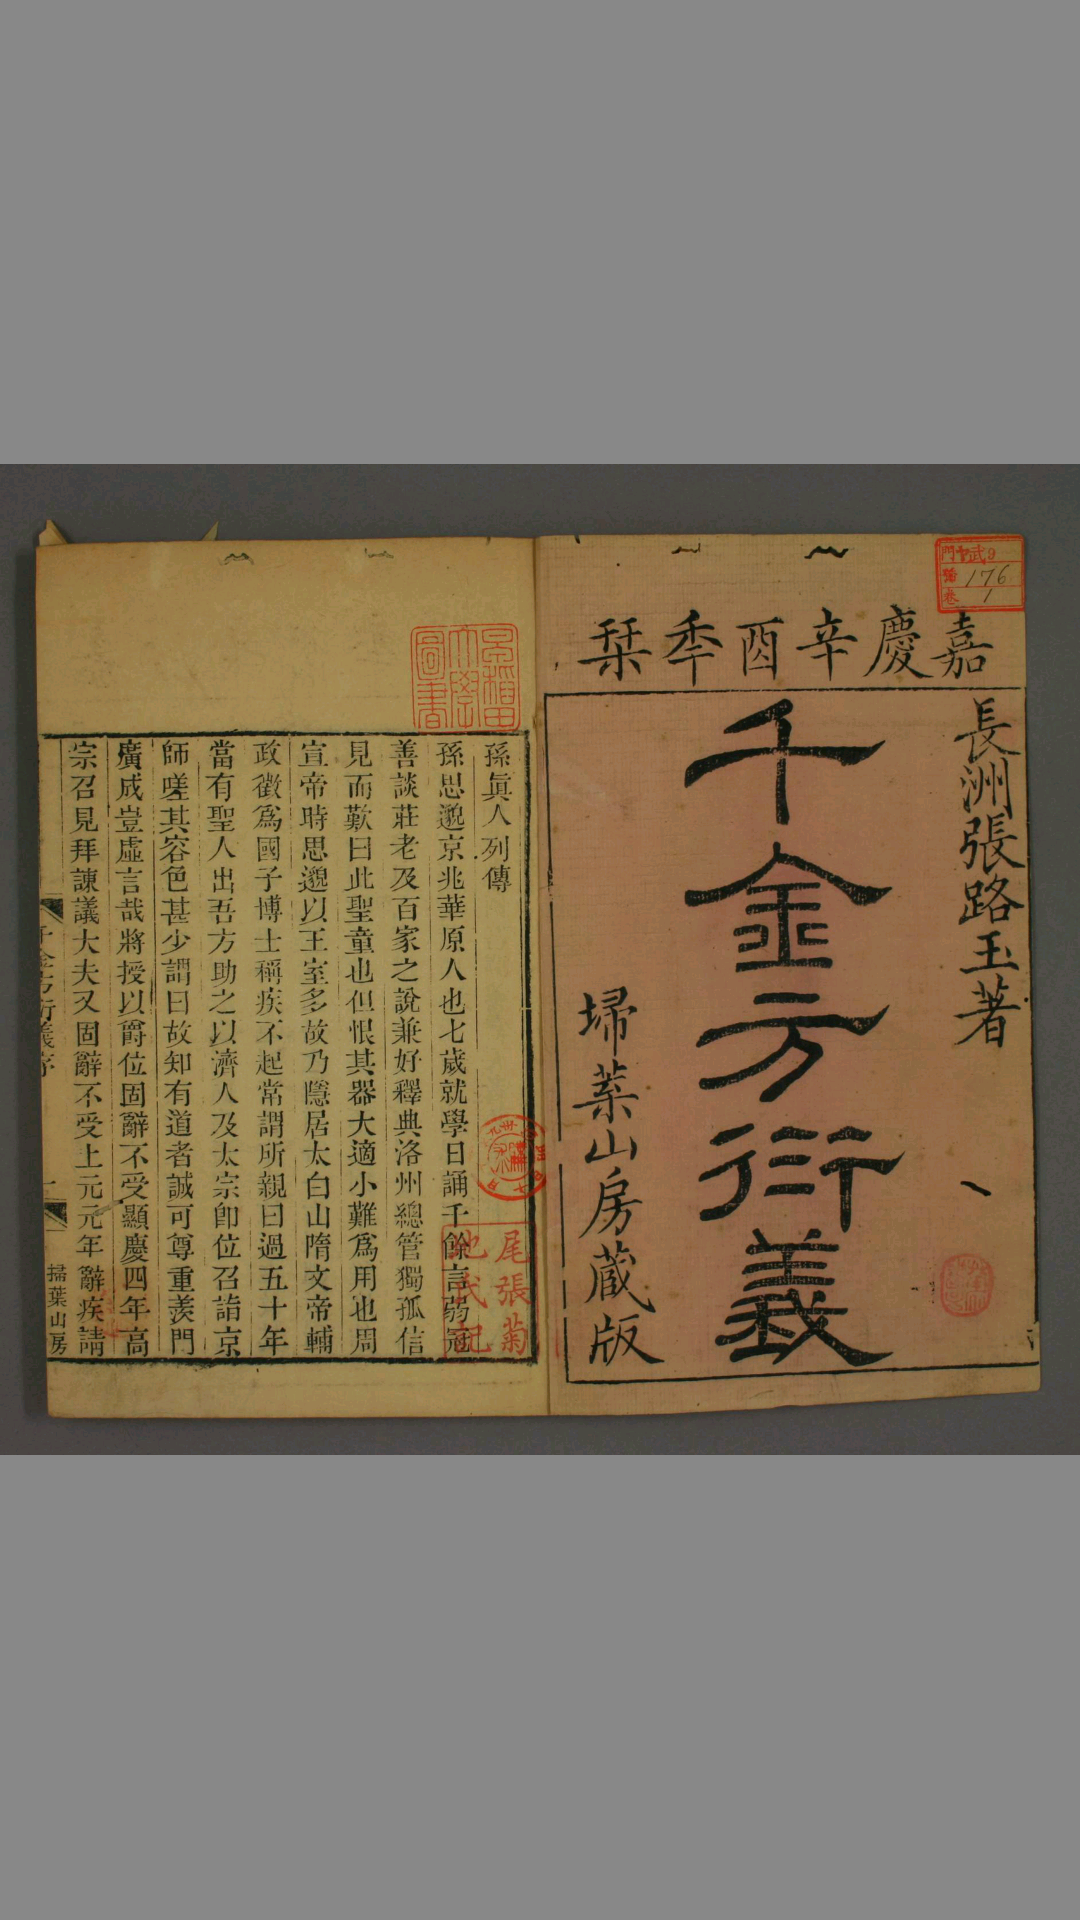 嘉慶辛酉季栞
長洲張路玉著
千金方衍義
埽葉山房蔵版
176
1
孫眞人列傳
孫思邈京兆華原人也七歲就學日誦千餘言弱冠
善談莊老及百家之說兼好釋典洛州總管獨孤信
見而歎曰此聖童也但恨其器大適小難爲用也周
宣帝時思邈以王室多故乃隱居太白山隋文帝輔
政徵爲國子博士稱疾不起常謂所親曰過五十年
當有聖人出吾方助之以濟人及太宗卽位召詣京
師嗟其容色甚少謂曰故知有道者誠可尊重羨門
廣成豈虛言哉將授以爵位固辭不受顯慶四年高
宗召見拜諫議大夫又固辭不受上元元年辭疾請
千金方衍義序
一
掃葉山房
早稻田大學圖書
尾張菊